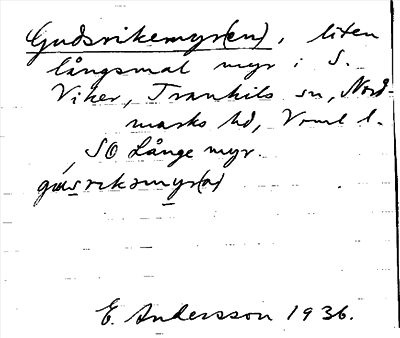 Gudsrikemyr(en), liten
långsmal myr i S.
Viker, Trankils sn, Nord-
marks hd, Vrml l.
SO Långe myr.
gusrikəmyr(a)
E. Andersson 1936.